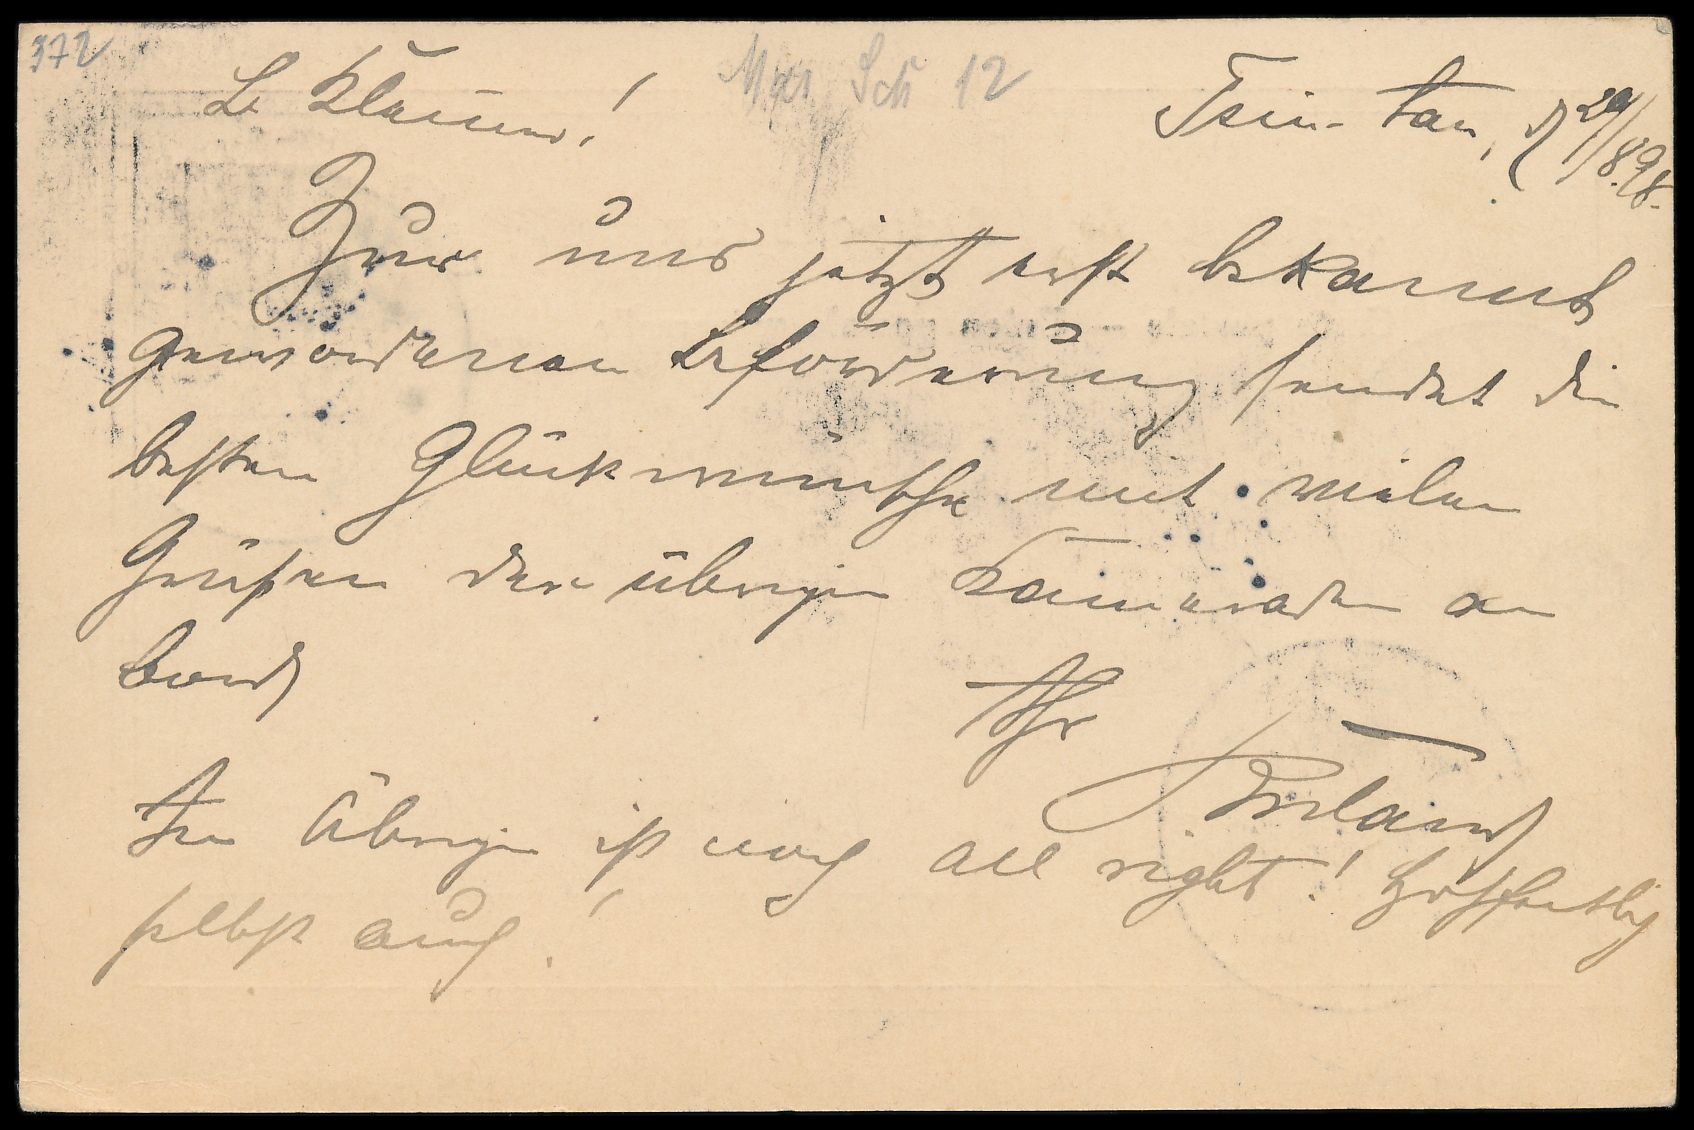 372
Mar Sch 12
L. Klamm!
Tsin-tau, d 29/8.98.
Zur uns jetzt erst bekannt
gewordenen Beförderung sendet die
besten Glückwünsche mit vielen
Grüßen der übrigen Kameraden an
Bord
Ihr
Im Übrigen ist noch all right! Hoffentlich
selbst auch!